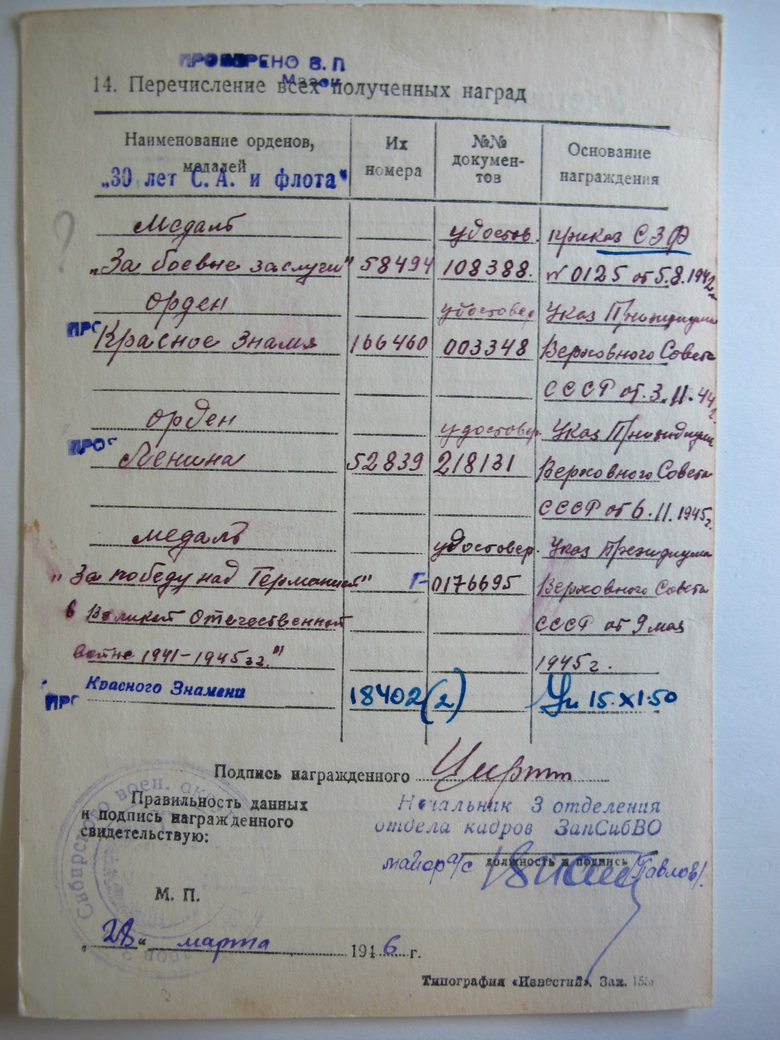 ПРОВЕРЕНО В. П
14. Перечисление всех полученных наград
Наименование орденов, медалей
Их номера
№№ документов
Основание награждения
„30 лет С. А. и флота"
Медаль удостов. приказ СЗФ
„За боевые заслуги" 58494 108388. № 0125 от 5.8.1942г.
орден удостовер Указ Президиума
ПРО Красное Знамя 166460 003348 Верховного Совета
СССР от 3.11.44г.
орден удостовер. Указ Президиума
ПРОВ Ленина 52839 218131 Верховного Совета
СССР от 6.11.1945г.
медаль удостовер. Указ Президиума
„За победу над Германией" Г-0176695 Верховного Совета
в Великой Отечественной СССР от 9 мая
войне 1941-1945гг." 1945г.
ПРО Красного Знамени 18402(2) Ук 15.XI.50
Подпись награжденного
Правильность данных
и подпись награжденного
свидетельствую:
Начальник 3 отделения
отдела кадров ЗапСибВО
майор а/с /Павлов/.
должность и подпись
М. П.
„28" марта 1946 г.
Типография «Известий». Зак.
Сибирского воен. окр